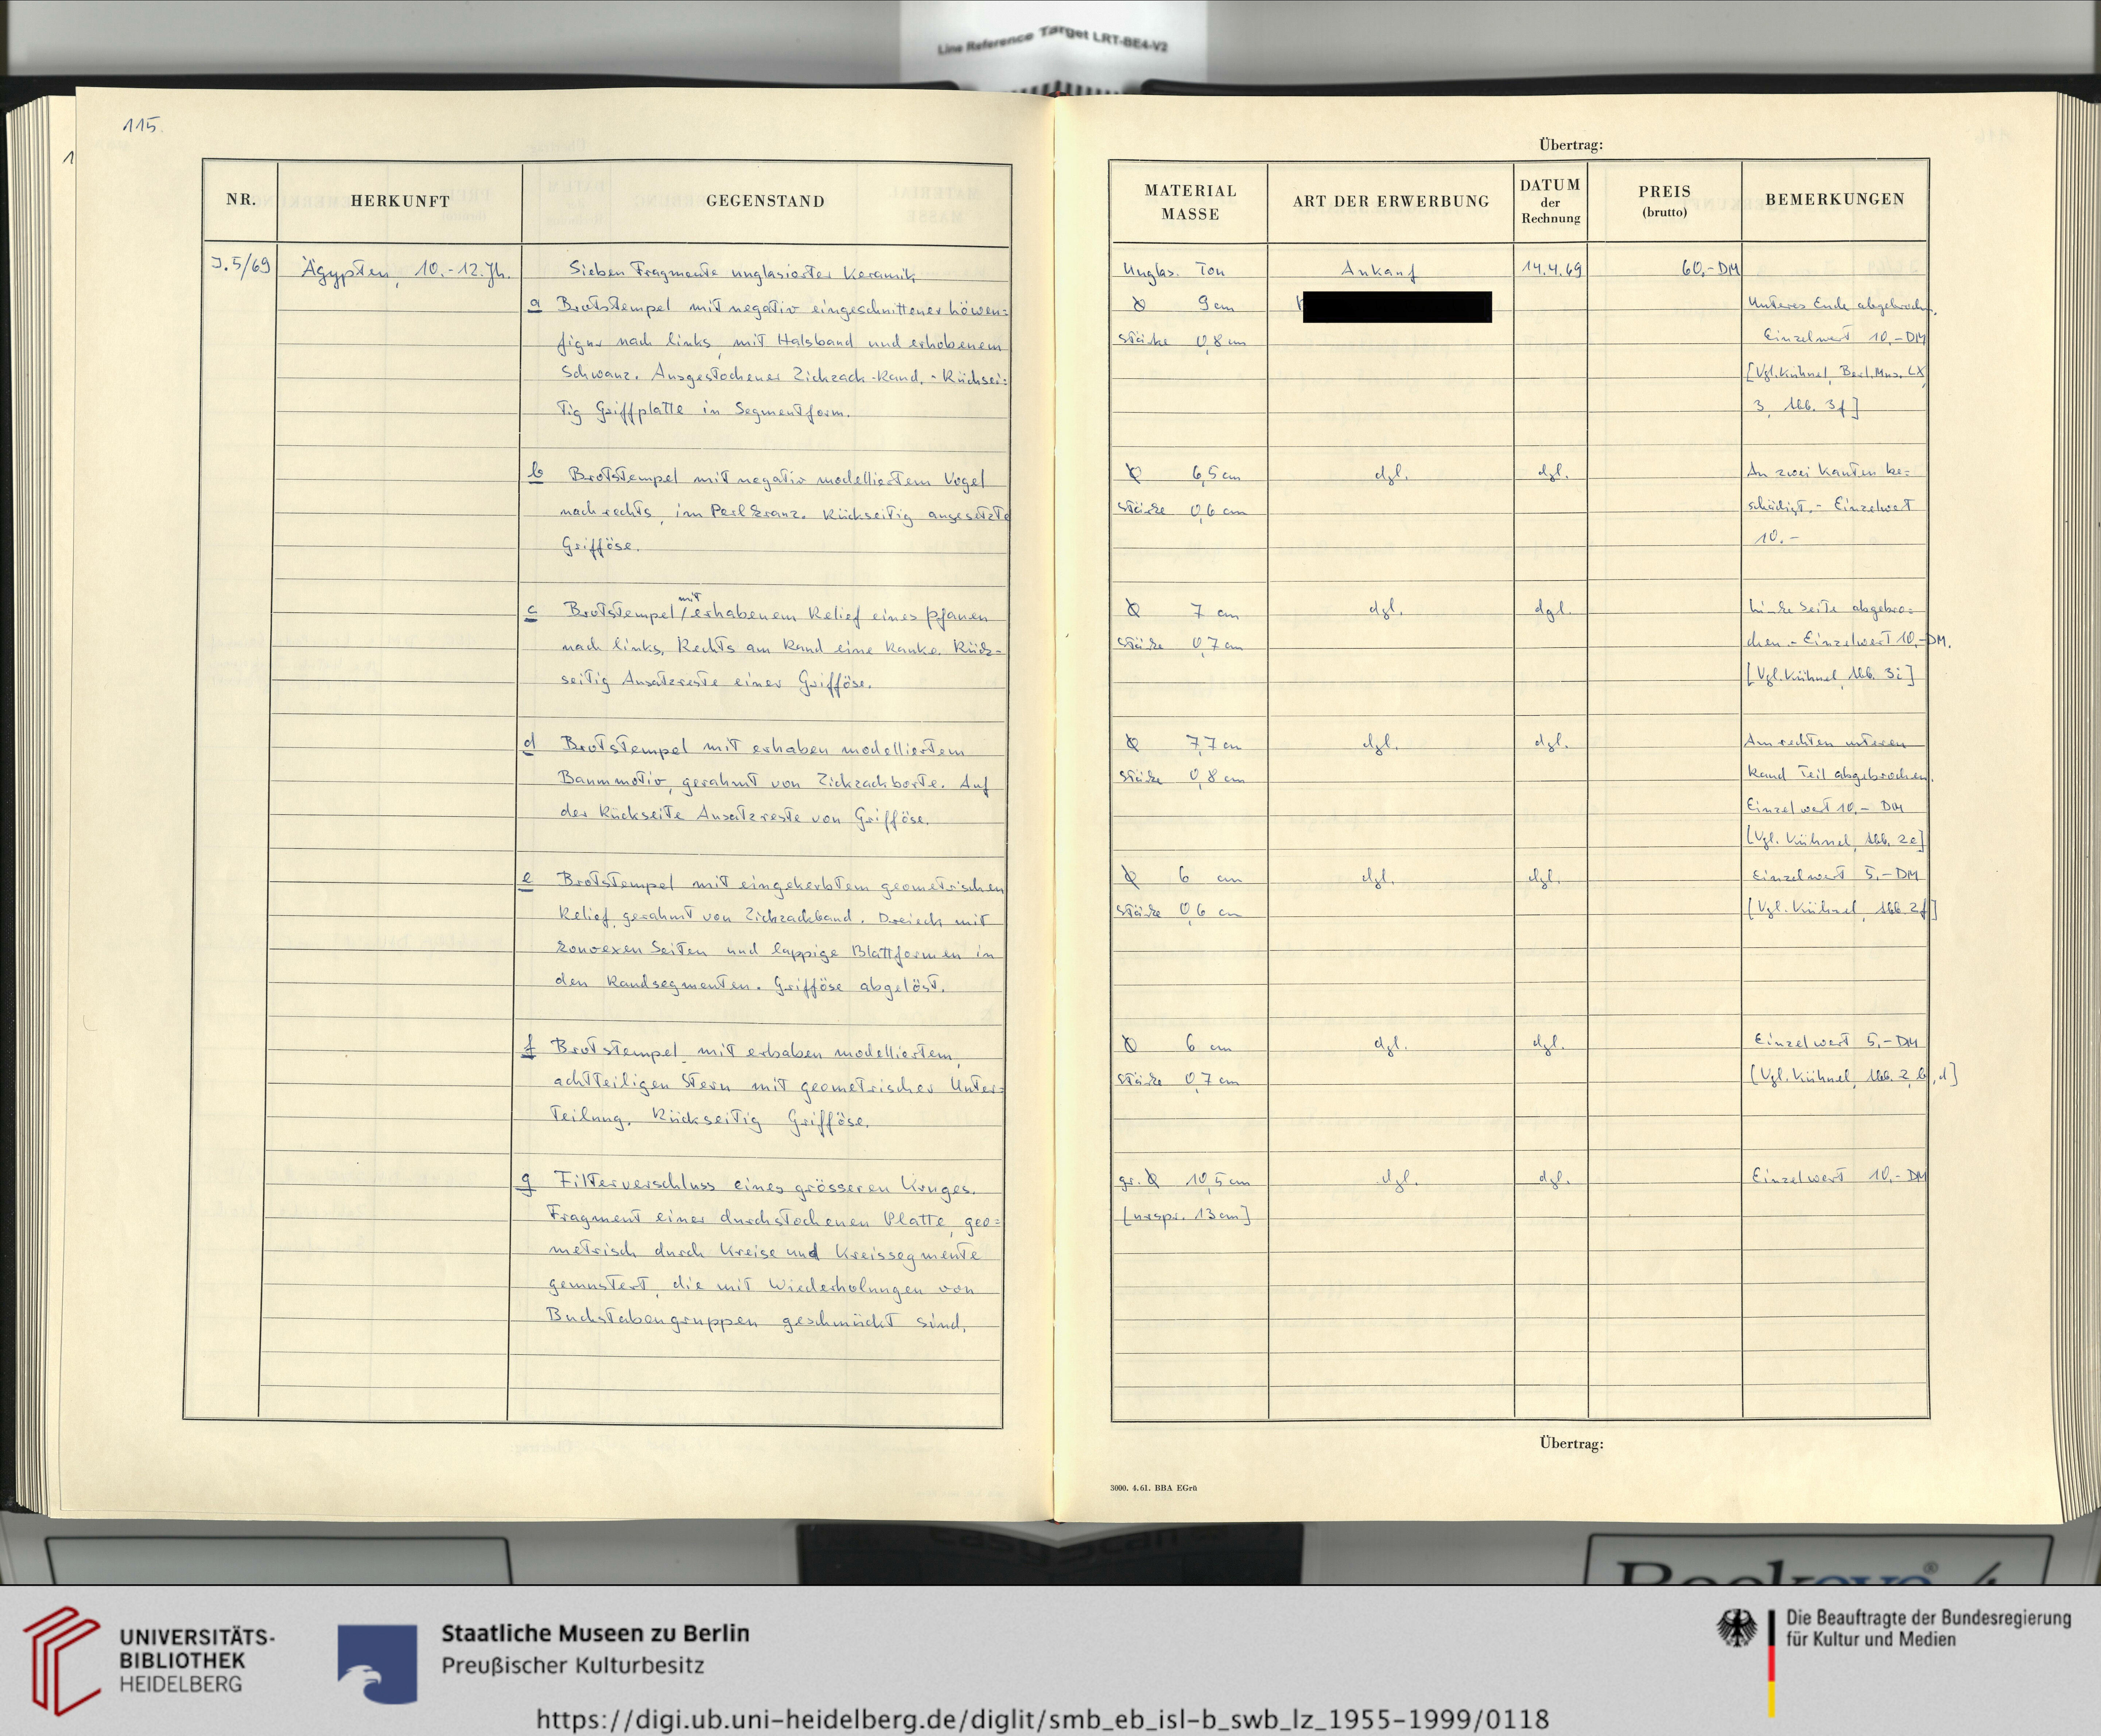 Line Reference Target LRT-BE4-V2
115.
1
NR.
HERKUNFT
GEGENSTAND
J. 5/69
Ägypten, 10.-12. Jh.
Sieben Fragmente unglasierter Keramik
a Brotstempel mit negativ eingeschnittener Löwen=
figur nach links, mit Halsband und erhobenem
Schwanz. Ausgestochener Zickzack-Rand. - Rücksei=
tig Griffplatte in Segmentform.
b Brotstempel mit negativ modelliertem Vogel
nach rechts, im Perlkranz. Rückseitig angesetzte
Grifföse.
c Brotstempel / mit erhabenem Relief eines Pfauen
nach links. Rechts am Rand eine Ranke. Rück-
seitig Ansatzreste einer Grifföse.
d Brotstempel mit erhaben modelliertem
Baummotiv, gerahmt von Zickzackborte. Auf
der Rückseite Ansatzreste von Grifföse.
e Brotstempel mit eingekerbtem geometrischen
Relief, gerahmt von Zickzackband. Dreieck mit
konvexen Seiten und lappige Blattformen in
den Randsegmenten. Grifföse abgelöst.
f Brotstempel mit erhaben modelliertem,
achtteiligen Stern mit geometrischer Unter=
teilung. Rückseitig Grifföse.
g Filterverschluss eines grösseren Kruges.
Fragment einer durchstochenen Platte, geo=
metrisch durch Kreise und Kreissegmente
gemustert, die mit Wiederholungen von
Buchstabengruppen geschmückt sind.
Übertrag:
MATERIAL
MASSE
ART DER ERWERBUNG
DATUM
der
Rechnung
PREIS
(brutto)
BEMERKUNGEN
Unglas. Ton
Ankauf
14.4.69
60,-DM
Ø 9 cm
Unteres Ende abgebroch.
Stärke 0,8 cm
Einzelwert 10,-DM
[Vgl. Kühnel, Berl. Mus. LX,
3, Abb. 3f]
Ø 6,5 cm
dgl.
dgl.
An zwei Kanten be=
Stärke 0,6 cm
schädigt. - Einzelwert
10.-
Ø 7 cm
dgl.
dgl.
Linke Seite abgebro=
Stärke 0,7 cm
chen. - Einzelwert 10,-DM.
[Vgl. Kühnel, Abb. 3i]
Ø 7,7 cm
dgl.
dgl.
Am rechten unteren
Stärke 0,8 cm
Rand Teil abgebrochen.
Einzelwert 10,- DM
[Vgl. Kühnel, Abb. 2e]
Ø 6 cm
dgl.
dgl.
Einzelwert 5,-DM
Stärke 0,6 cm
[Vgl. Kühnel, Abb. 2f]
Ø 6 cm
dgl.
dgl.
Einzelwert 5,-DM
Stärke 0,7 cm
[Vgl. Kühnel, Abb. 2, b, d]
gr. Ø 10,5 cm
dgl.
dgl.
Einzelwert 10,-DM
[urspr. 13 cm]
Übertrag:
3000. 4.61. BBA EGrü
UNIVERSITÄTS-
BIBLIOTHEK
HEIDELBERG
Staatliche Museen zu Berlin
Preußischer Kulturbesitz
Die Beauftragte der Bundesregierung
für Kultur und Medien
https://digi.ub.uni-heidelberg.de/diglit/smb_eb_isl-b_swb_lz_1955-1999/0118